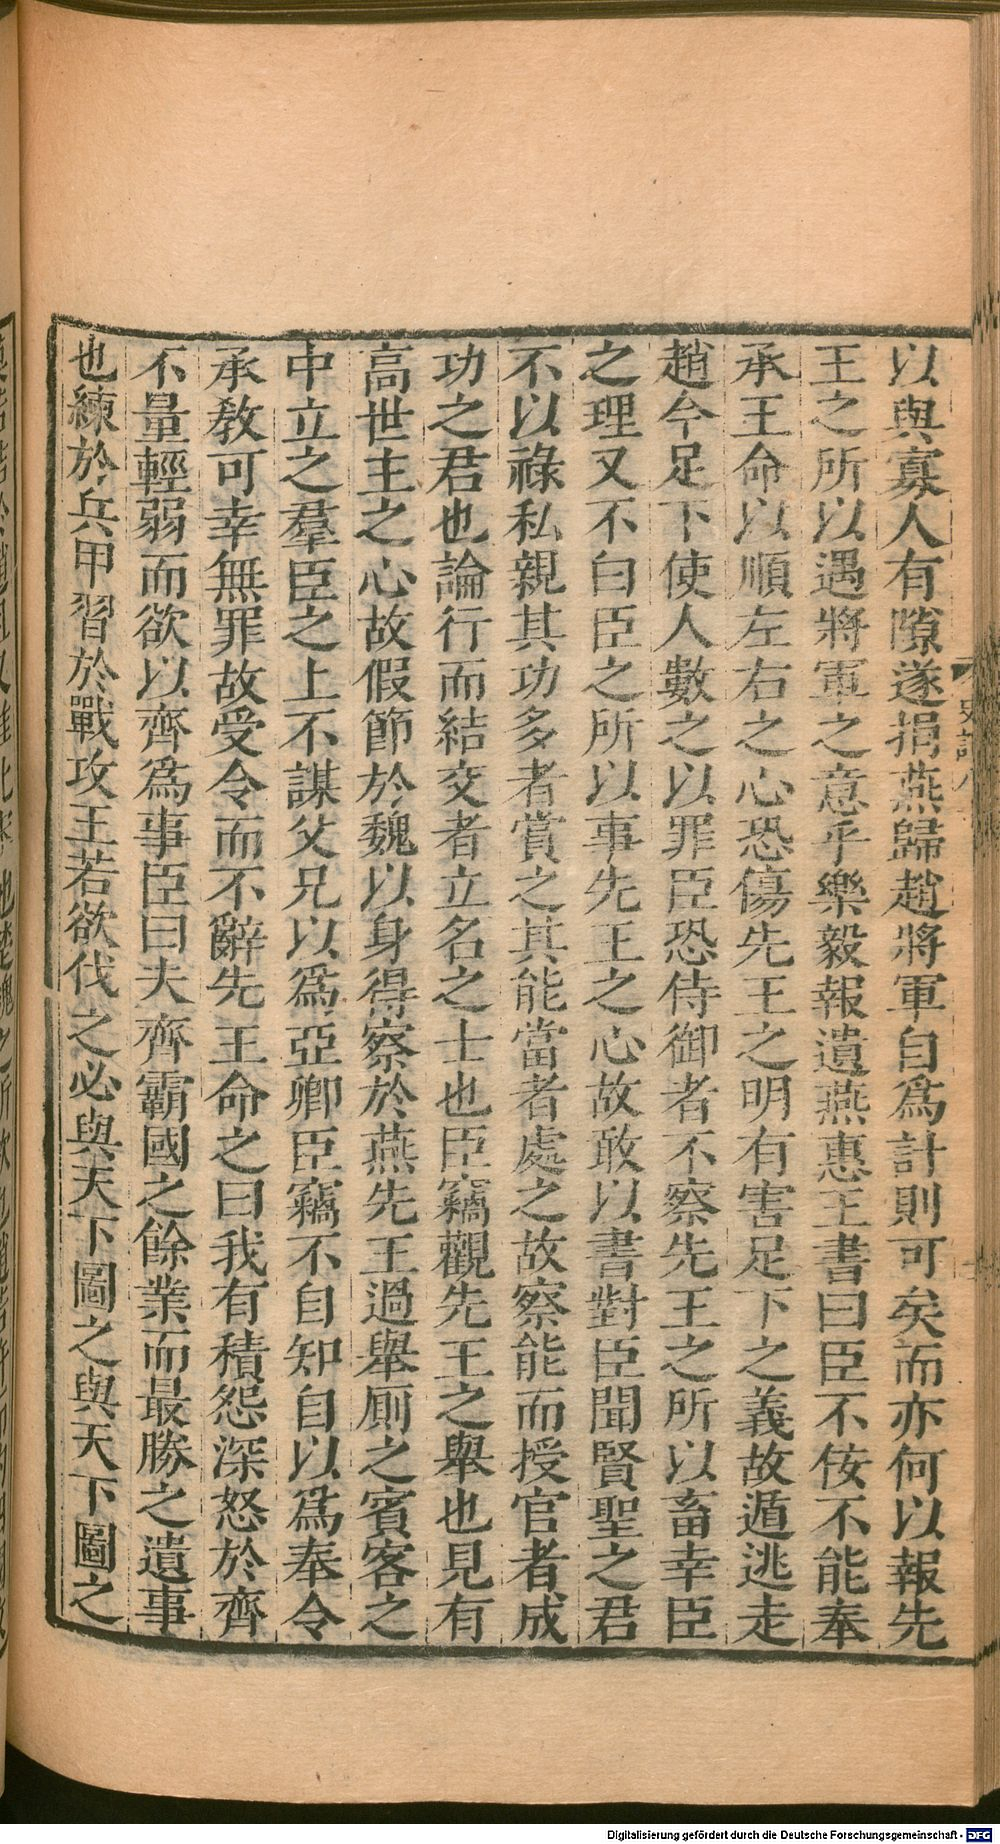 以與寡人有隙遂捐燕歸趙將軍自爲計則可矣而亦何以報先
王之所以遇將軍之意乎樂毅報遺燕惠王書曰臣不佞不能奉
承王命以順左右之心恐傷先王之明有害足下之義故遁逃走
趙今足下使人數之以罪臣恐侍御者不察先王之所以畜幸臣
之理又不白臣之所以事先王之心故敢以書對臣聞賢聖之君
不以祿私親其功多者賞之其能當者處之故察能而授官者成
功之君也論行而結交者立名之士也臣竊觀先王之舉也見有
高世主之心故假節於魏以身得察於燕先王過舉厠之賓客之
中立之羣臣之上不謀父兄以爲亞卿臣竊不自知自以爲奉令
承教可幸無罪故受令而不辭先王命之曰我有積怨深怒於齊
不量輕弱而欲以齊爲事臣曰夫齊霸國之餘業而最勝之遺事
也練於兵甲習於戰攻王若欲伐之必與天下圖之與天下圖之
Digitalisierung gefördert durch die Deutsche Forschungsgemeinschaft - DFG